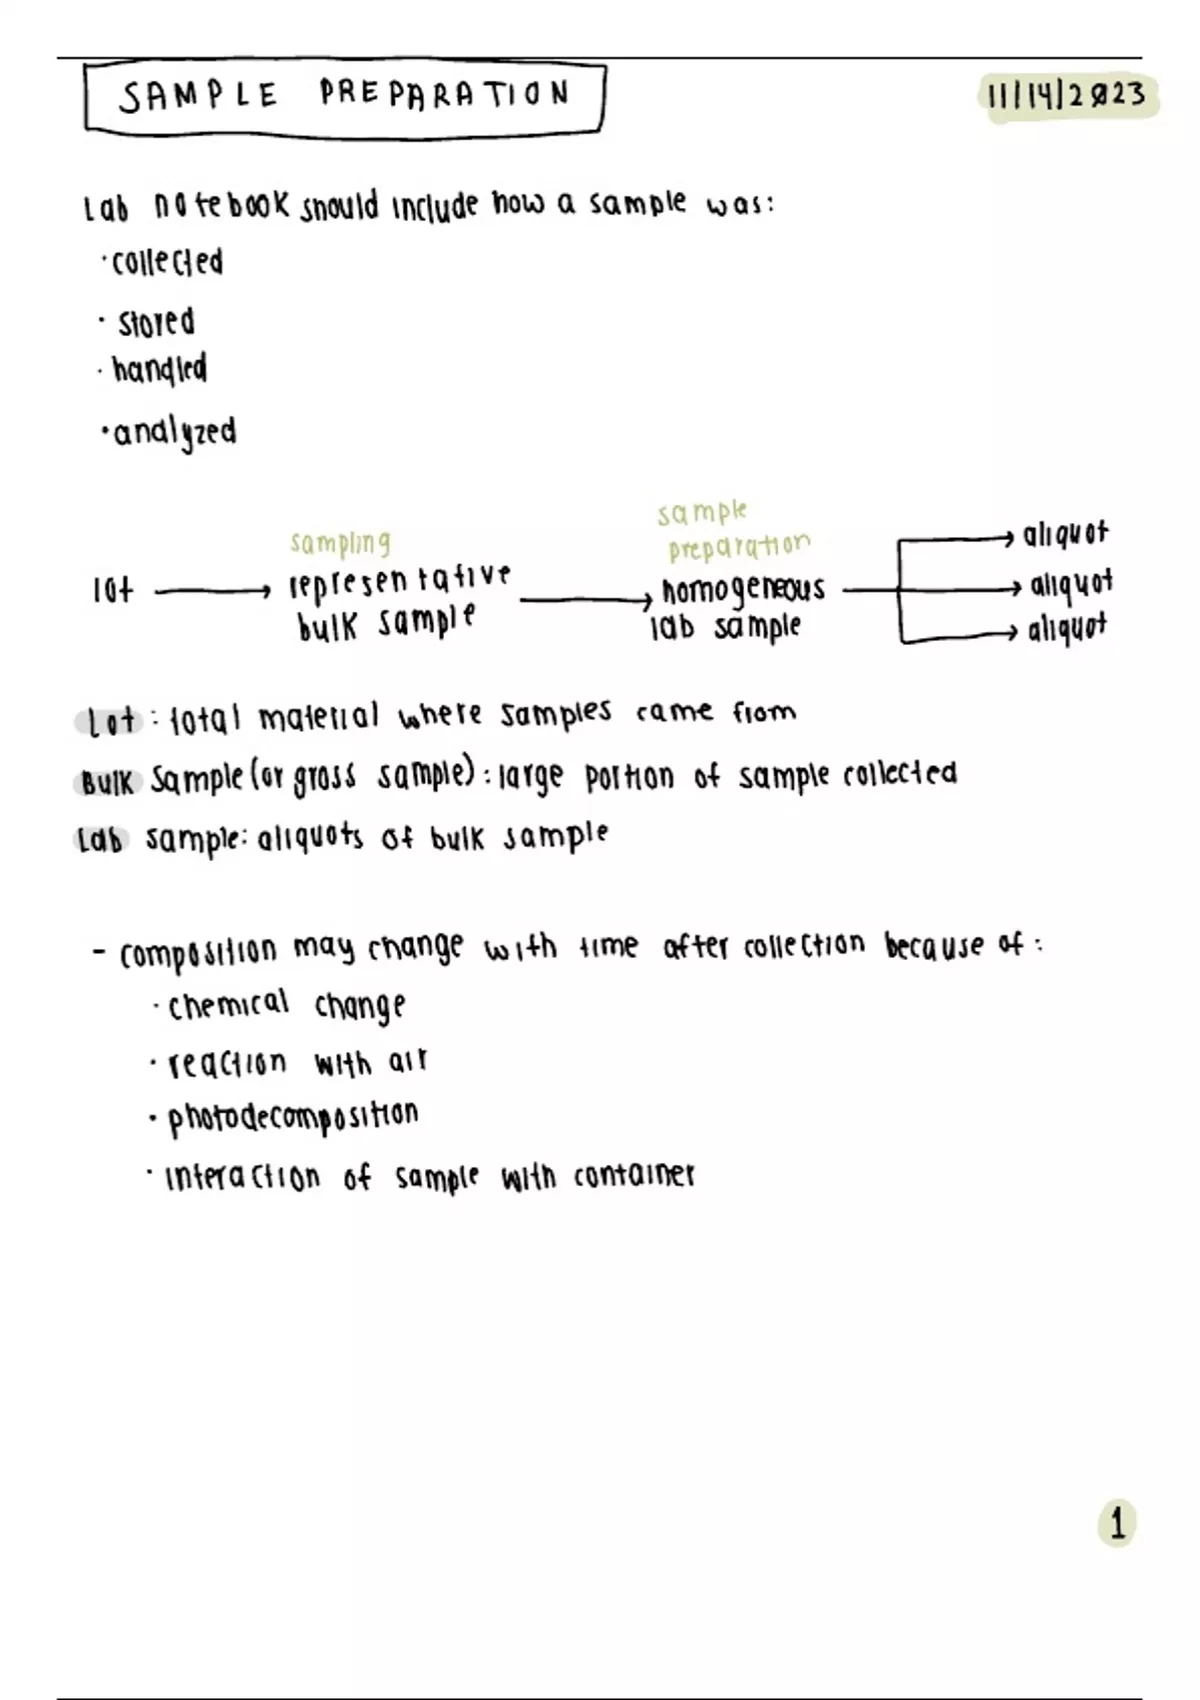 SAMPLE PREPARATION
11/14/2023
Lab notebook should include how a sample was:
· collected
· stored
· handled
· analyzed
sampling
sample
preparation
lot → representative
bulk sample → homogeneous
lab sample → aliquot
→ aliquot
→ aliquot
Lot: total material where samples came from
Bulk Sample (or gross sample): large portion of sample collected
Lab sample: aliquots of bulk sample
- composition may change with time after collection because of:
· chemical change
· reaction with air
· photodecomposition
· interaction of sample with container
1